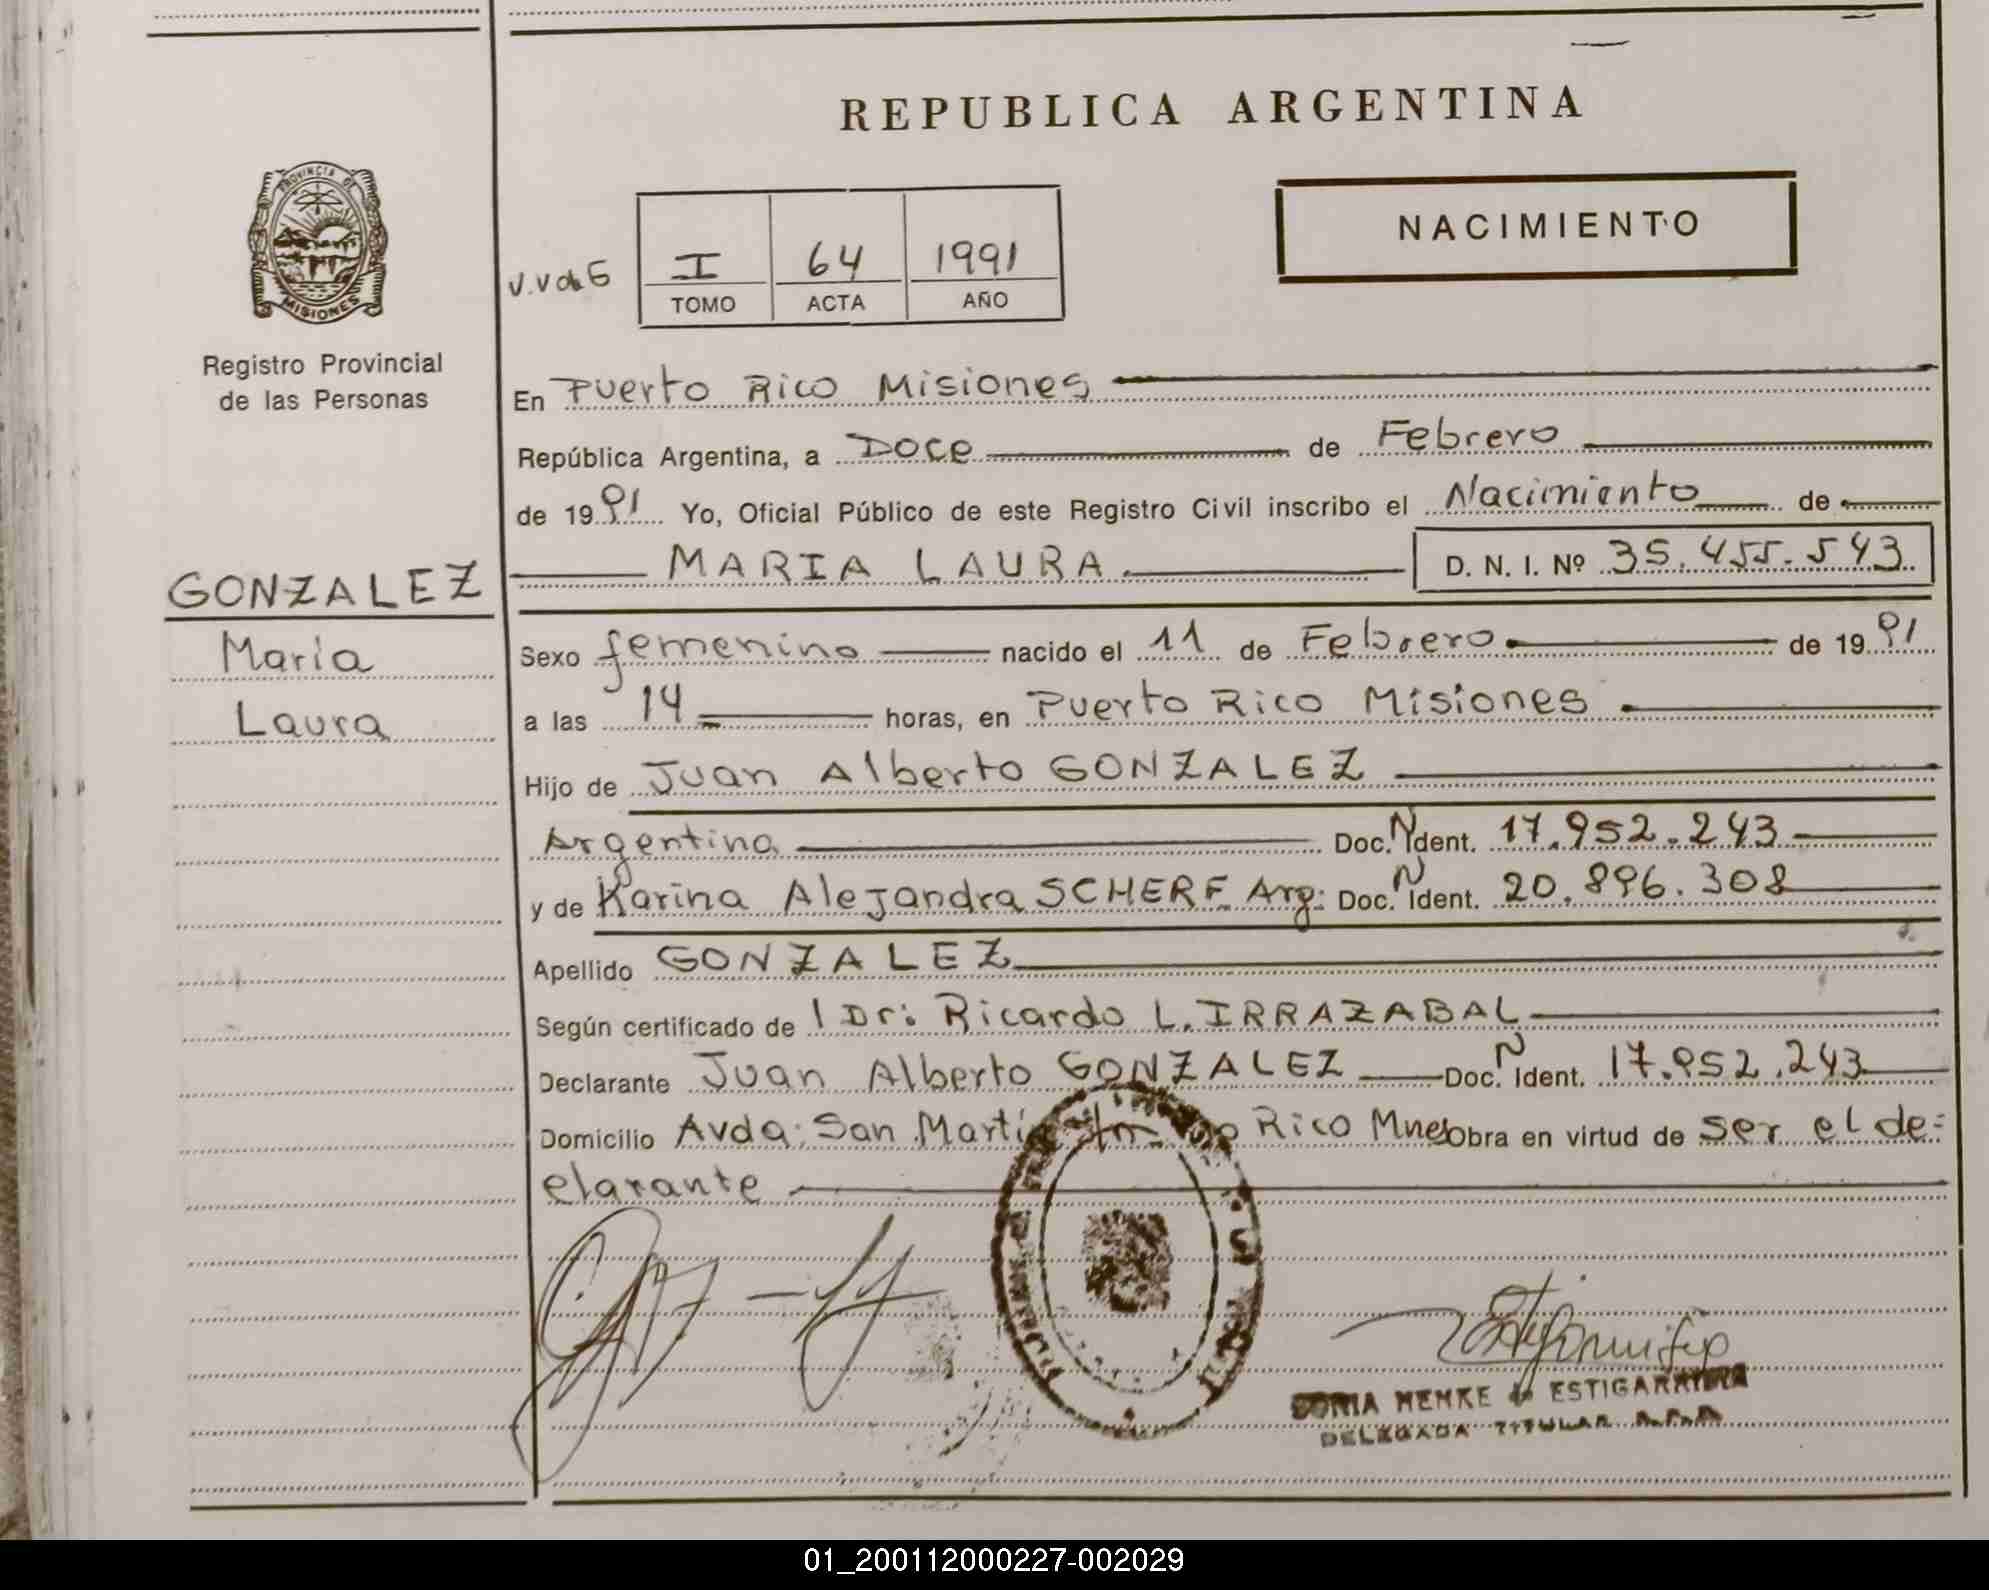 REPUBLICA ARGENTINA
NACIMIENTO
PROVINCIA DE
MISIONES
Registro Provincial
de las Personas
I 64 1991
TOMO ACTA AÑO
En Puerto Rico Misiones
República Argentina, a Doce de Febrero
de 1991 Yo, Oficial Público de este Registro Civil inscribo el Nacimiento de
MARIA LAURA D. N. I. Nº 35.455.543
GONZALEZ
Maria
Laura
Sexo femenino nacido el 11 de Febrero de 1991
a las 14 horas, en Puerto Rico Misiones
Hijo de Juan Alberto GONZALEZ
Argentino Doc. N Ident. 17.952.243
y de Karina Alejandra SCHERF Arg: Doc. N Ident. 20.896.308
Apellido GONZALEZ
Según certificado de l Dr: Ricardo L. IRRAZABAL
Declarante Juan Alberto GONZALEZ Doc. N Ident. 17.952.243
Domicilio Avda. San Martín Rico Mnes Obra en virtud de ser el de=
clarante
MENKE de ESTIGARRIBIA
DELEGADA TITULAR
01_200112000227-002029